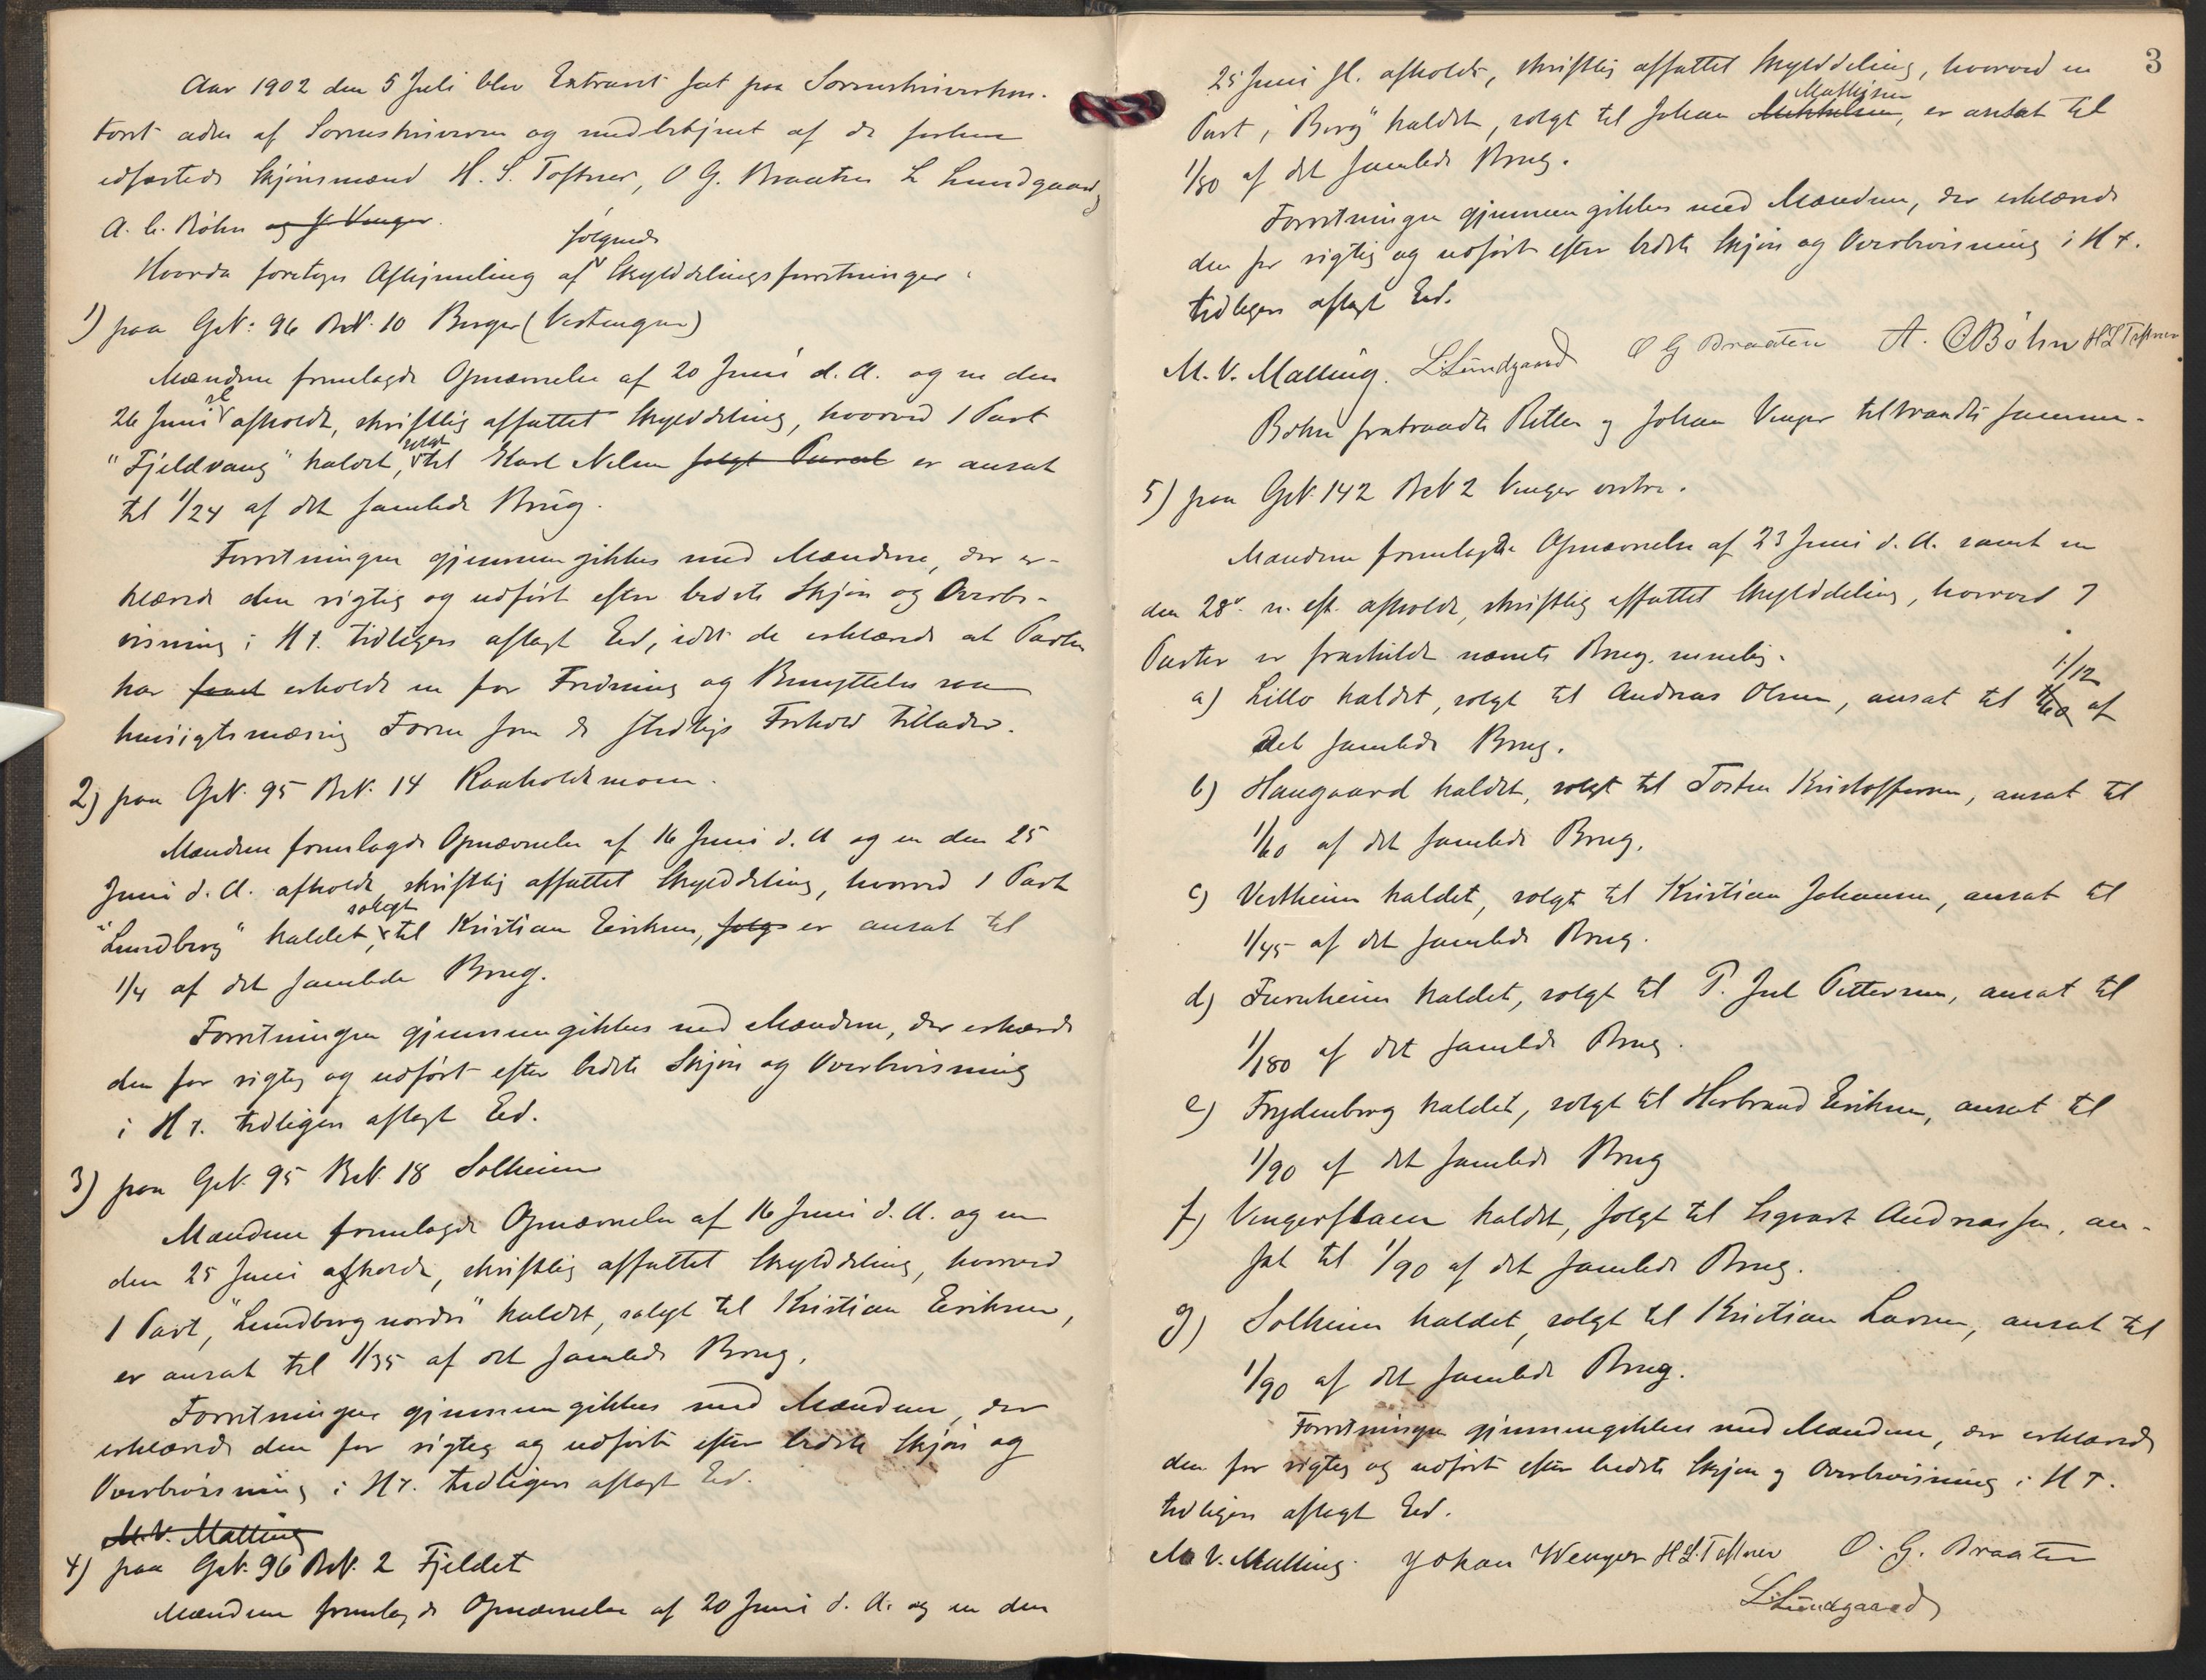 Aar 1902 den 5 Juli blev Extraret sat paa Sorenskriverkon-
toret adm af Sorenskriveren og medbetjent af de forhen
edfæstede Skjønsmænd H. S. Toftner, O G. Braaten L Lundgaard,
A. C. Bøhn og J. Venger.
Hvorda foretoges Afhjemling af følgende Skylddelingsforretninger:
1) paa GrN: 96 BrN: 10 Berger (Vestengen)
Mændene fremlagde Opnævnelse af 20 Juni d. A. og en den
26 Juni sl afholdt, skriftlig affattet Skylddeling, hvorved 1 Part
"Fjeldvang" kaldet, solgt til Karl Nilsen solgt er ansat
til 1/24 af det samlede Brug.
Forretningen gjennemgikkes med Mændene, der er-
klærede den rigtig og udført efter bedste Skjøn og Overbe-
visning i H t. tidligere aflagt Ed, idet de erklærede at Parten
har faaet erholdt en for Fredning og Benyttelse saa
hensigtsmæssig Form som de stedlige Forhold tillader.
2) paa GrN. 95 BrN. 14 Raaholdtmoen.
Mændene fremlagde Opnævnelse af 16 Juni d. A og en den 25
Juni d. A. afholdt skriftlig affattet Skylddeling, hvorved 1 Part
"Lundberg" kaldet, solgt til Kristian Eriksen, solgt er ansat til
1/4 af det samlede Brug.
Forretningen gjennemgikkes med Mændene, der erklærede
den for rigtig og udført efter bedste Skjøn og Overbevisning
i H t. tidligere aflagt Ed.
3) paa GrN. 95 BrN. 18 Solheim
Mændene fremlagde Opnævnelse af 16 Juni d. A. og en
den 25 Juni afholdt, skriftlig affattet Skylddeling, hvorved
1 Part, "Lundberg nordre" kaldet, solgt til Kristian Eriksen,
er ansat til 1/35 af det samlede Brug.
Forretningen gjennemgikkes med Mændene, der
erklærede den for rigtig og udført efter bedste Skjøn og
Overbevisning i H t. tidligere aflagt Ed.
M. V. Malling
4) paa GrN. 96 BrN. 2 Fjeldet
Mændene fremlagde Opnævnelse af 20 Juni d. A. og en den
3
25 Juni sl. afholdt, skriftlig affattet Skylddeling, hvorved en
Part, "Berg" kaldet, solgt til Johan Mikkelsen Mathisen, er ansat til
1/80 af det samlede Brug.
Forretningen gjennemgikkes med Mændene, der erklærede
den for rigtig og udført efter bedste Skjøn og Overbevisning i H t.
tidligere aflagt Ed.
M. V. Malling. L. Lundgaard O G Braaten A. C Bøhn H L Toftner
Bøhn fratraadte Retten og Johan Venger tiltraadte samme.
5) paa GrN. 142 BrN 2 Venger vestre.
Mændene fremlagde Opnævnelse af 23 Juni d. A. samt en
den 28de n. eft. afholdt, skriftlig affattet Skylddeling, hvorved 7
Parter er fraskildt nævnte Brug. nemlig.
a) Lillo kaldet, solgt til Andreas Olsen, ansat til 1/60 1/12 af
det samlede Brug.
b) Haugaard kaldet, solgt til Tosten Kristoffersen, ansat til
1/60 af det samlede Brug.
c) Vestheim kaldet, solgt til Kristian Johansen, ansat til
1/45 af det samlede Brug.
d) Furuheim kaldet, solgt til P. Jul Pettersen, ansat til
1/180 af det samlede Brug.
e) Frydenberg kaldet, solgt til Herbrand Eriksen, ansat til
1/90 af det samlede Brug
f) Vengersslaaen kaldet, solgt til Sigvart Andreassen, an-
sat til 1/90 af det samlede Brug.
g) Solheim kaldet, solgt til Kristian Larsen, ansat til
1/90 af det samlede Brug.
Forretningen gjennemgikkes med Mændene, der erklærede
den for rigtig og udført efter bedste Skjøn og Overbevisning i H t.
tidligere aflagt Ed.
M V. Malling. Johan Wenger H L. Toftner O. G. Braaten
L. Lundgaard